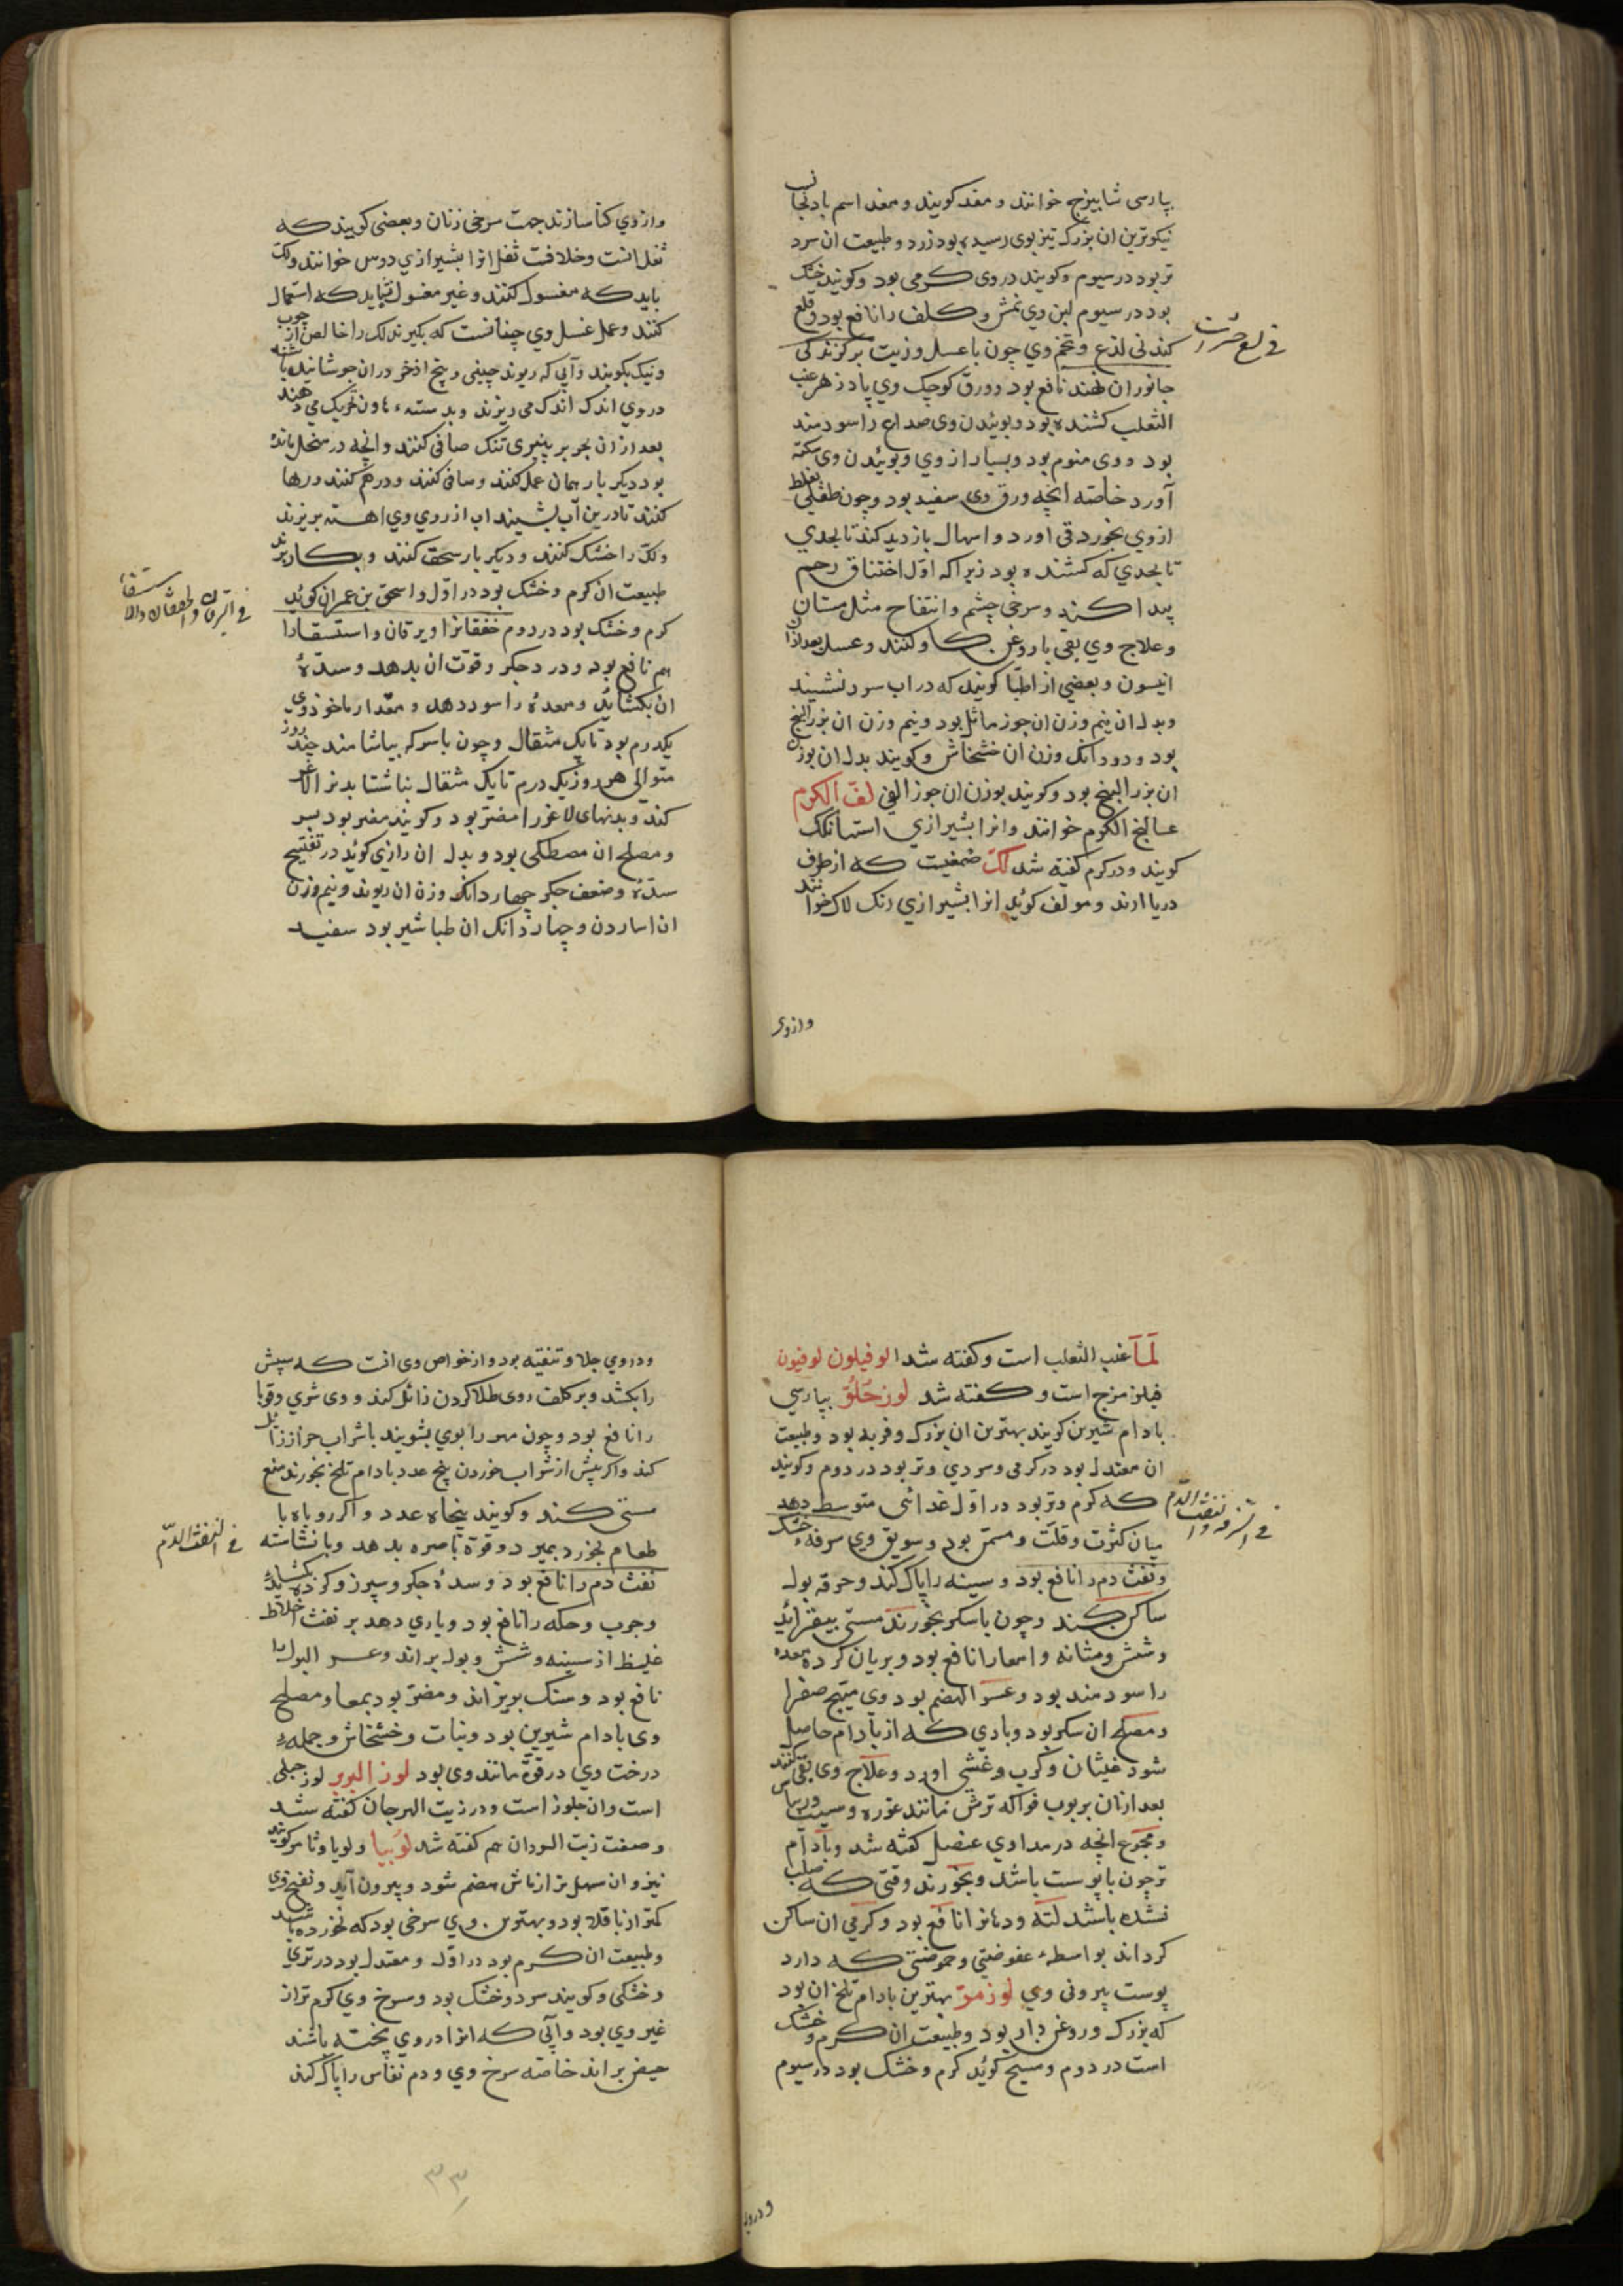 بپارسی شابیزج خوانند و مغد کویند و مغد اسم بادنجانست
نیکوترین ان بزرک تیزبوی رسیده بود زرد و طبیعت ان سرد
تر بود در سیوم و کویند در وی کرمی بود و کویند خشک
بود در سیوم لبن وی نمش و کلف را نافع بود و قلع
کند بی لذع و تخم وی چون با عسل و زیت بر کزندکی
جانوران نهند نافع بود و ورق کوچک وی پادزهر عنب
الثعلب کشنده بود و بوئیدن وی صداع را سودمند
بود و وی منوم بود و بسیار از وی و بوئیدن وی سکته
آورد خاصه انچه ورق وی سفید بود و چون طفلی بغلط
از وی بخورد قی اورد و اسهال بازدید کند تا بحدی
تا بحدی که کشنده بود زیرا که اول اختناق رحم
پیدا کند و سرخی چشم و انتفاح مثل مستان
و علاج وی بقی با روغن کاو کنند و عسل بعد ازان
انیسون و بعضی از اطبا کویند که در اب سرد نشیند
و بدل ان نیم وزن ان جوز ماثل بود و نیم وزن ان بزر البنج
بود و دو دانک وزن ان خشخاش و کویند بدل ان بوزن
ان بزر البنج بود و کویند بوزن ان جوز القی لفّ الکرم
عسالیج الکرم خوانند و انرا بشیرازی
کویند و در کرم کفته شد لکّ صمغیست که از طرف
دریا ارند و مولف کوید انرا بشیرازی رنک لاک خوانند
فی
وازوی
وازوی سازند جهت سرخی زنان و بعضی کویند که
ثفل انست و خلافست ثفل انرا بشیرازی دوس خوانند ولک
باید که مغسول کنند و غیر مغسول نباید که استعمال
کنند و عمل غسل وی چنانست که بکیرند لک را خالص از چوب
و نیک بکوبند و آبی که ریوند چینی و بیخ اذخر دران جوشانیده باشند
در وی اندک اندک می ریزند و بدسته هاون تحریک می دهند
بعد ازان بحریر تنک صافی کنند و انچه در منخل مانده
بود دیکر بار همان عمل کنند و صافی کنند و درهم کنند و رها
کنند تا در بن آب بشیند اب از روی وی اهسته بریزند
ولک را خشک کنند و دیکر بار سحق کنند و بکار برند
طبیعت ان کرم و خشک بود در اول و اسحق بن عمران کوید
کرم و خشک بود در دوم خفقانرا و یرقان و استسقا را
هم نافع بود و درد جکر و قوت ان بدهد و سدّهٔ
ان بکشاید و معده را سود دهد و مقدار ماخوذ وی
یکدرم بود تا یک مثقال و چون با سرکه بیاشامند چند روز
متوالی هر روز یکدرم تا یک مثقال بناشتا بدن را لاغر
کند و بدنهای لاغر را مضر بود و کویند مضر بود بسر
و مصلح ان مصطکی بود و بدل ان رازی کوید در تفتیح
سدّه و ضعف جکر چهار دانک وزن ان ریوند و نیم وزن
ان اسارون و چهار دانک ان طباشیر بود سفید
فی الیرقان والخفقان والاستسقاء
لَمَا عنب الثعلب است و کفته شد الوفیلون لوفیون
فیلزمزج است و کفته شد لوز حُلوٌ بپارسی
بادام شیرین کویند بهترین ان بزرک و فربه بود و طبیعت
ان معتدل بود در کرمی و سردی و تر بود در دوم و کویند
که کرم و تر بود در اول غدائی متوسط دهد
میان کثرت و قلت و مسمن بود و سویق وی سرفه خشک
و نفث دم را نافع بود و سینه را پاک کند و حرقه بول
ساکن کند و چون با سکر بخورند منی بیفزاید
و شش و مثانه و امعا را نافع بود و بریان کرده معده
را سودمند بود و عسر الهضم بود و وی مهیج صفرا
و مصلح ان سکر بود و بادی که از بادام حاصل
شود غثیان و کرب و غشی اورد و علاج وی بقی کنند
بعد ازان بربوب فواکه ترش مانند غوره و سیب و ریباس
و مجموع انچه در مداوی عنصل کفته شد و بادام
تر چون با پوست باشد و بخورند وقتی که صلب
نشده باشد لثه و دهانرا نافع بود و کرمی ان ساکن
کرداند بواسطه عفوصتی و حموضتی که دارد
پوست بیرونی وی لوز مرّ بهترین بادام تلخ ان بود
که بزرک و روغن دار بود و طبیعت ان کرم و خشک
است در دوم و مسیح کوید کرم و خشک بود در سیوم
فی السرفه و نفث الدّم
و در وی
و در وی جلا و تنقیه بود و از خواص وی انست که سپش
را بکشد و بر کلف روی طلا کردن زائل کند و وی شری و قوبا
را نافع بود و چون سر را بوی بشویند با شراب حزاز زائل
کند و اکر پیش از شراب خوردن پنج عدد بادام تلخ بخورند منع
مستی کند و کویند پنجاه عدد و اکر روباه با
طعام بخورد بمیرد و قوة باصره بدهد و با نشاسته
نفث دم را نافع بود و سدهٔ جکر و سپرز و کرده بکشاید
و جرب و حکه را نافع بود و یاری دهد بر نفث اخلاط
غلیظ از سینه و شش و بول براند و عسر البول را
نافع بود و سنک بریزاند و مضر بود بمعا و مصلح
وی بادام شیرین بود و نبات و خشخاش و جملهٔ
درخت وی در قوة مانند وی بود لوز البربر لوز جبلی
است و ان جلوز است و در زیت الهرجان کفته شد
و صفت زیت السودان هم کفته شد لوبیا و لوبا و ثامر کویند
نیز و ان سهل تر از ماش هضم شود و بیرون آید و نفخ وی
کمتر از باقلا بود و بهترین وی سرخی بود که نخورده باشد
و طبیعت ان کرم بود در اول و معتدل بود در تری
و خشکی و کویند سرد و خشک بود و سرخ وی کرم تر از
غیر وی بود و آبی که انرا در وی پخته باشند
حیض براند خاصه سرخ وی و دم نفاس را پاک کند
فی النفث الدّم
۳۳